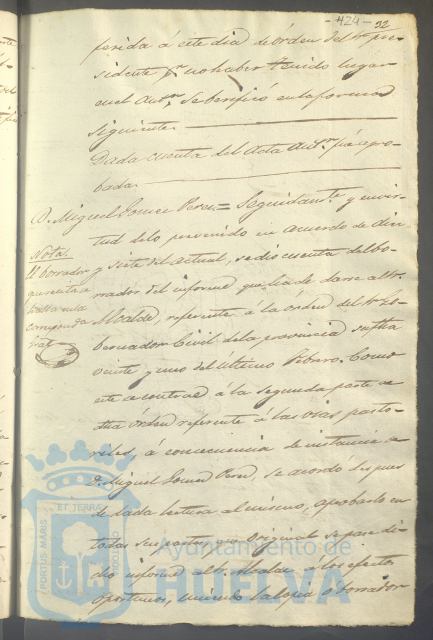 -424- 32
ferida á este dia de órden del Sr. pre-
sidente pr. no haber tenido lugar
en el Antr. Se berificó en la forma
siguiente.
Dada cuenta del Acta Antr. fué apro-
bada.
D. Miguel Gomez Perez = Seguidamte. y en vir-
tud de lo prevenido en acuerdo de diez
y siete del actual, se dió cuenta del bo-
rrador del informe que ha de darse al Sr.
Alcalde, referente á la órden del Sr. Go-
bernador Civil de la provincia su fha
veinte y uno del último Febrero. Como
este se contrae á la segunda parte de
dha órden referente á las vias pasto-
riles, á consecuencia de instancia de
D. Miguel Gomez Perez, se acordó despues
de dada lectura al mismo, aprobarlo en
todas sus partes, y que original se pase di-
cho informe al Sr. Alcalde a los efectos
oportunos, uniendo la copia o borrador
Nota.
El borrador
que se cita
se halla en la
carpeta
PORTUS MARIS
ET TERRAE
CUSTODIA
Ayuntamiento de
HUELVA